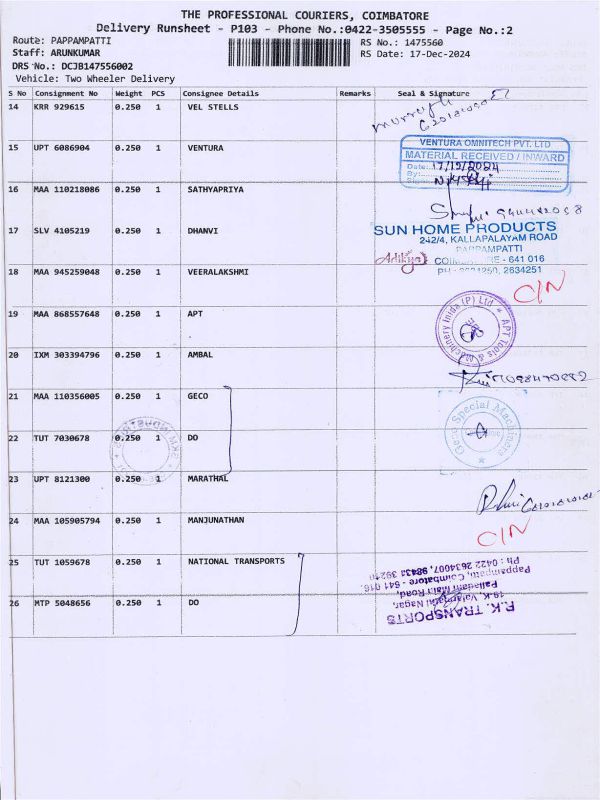 THE PROFESSIONAL COURIERS, COIMBATORE
Delivery Runsheet - P103 - Phone No.:0422-3505555 - Page No.:2
Route: PAPPAMPATTI
RS No.: 1475560
Staff: ARUNKUMAR
RS Date: 17-Dec-2024
DRS No.: DCJB147556002
Vehicle: Two Wheeler Delivery
S No Consignment No Weight PCS Consignee Details Remarks Seal & Signature
14 KRR 929615 0.250 1 VEL STELLS
15 UPT 6086904 0.250 1 VENTURA
VENTURA OMNITECH PVT. LTD
MATERIAL RECEIVED / INWARD
Date: 17/12/2024
By:
Sign:
16 MAA 110218086 0.250 1 SATHYAPRIYA
17 SLV 4105219 0.250 1 DHANVI
SUN HOME PRODUCTS
242/4, KALLAPALAYAM ROAD
PAPPAMPATTI
COIMBATORE - 641 016
2634251
18 MAA 945259048 0.250 1 VEERALAKSHMI
C/N
19 MAA 868557648 0.250 1 APT
APT Tools & Machinery India (P) Ltd
20 IXM 303394796 0.250 1 AMBAL
21 MAA 110356005 0.250 1 GECO
Geco Special Machines
22 TUT 7030678 0.250 1 DO
23 UPT 8121300 0.250 1 MARATHAL
24 MAA 105905794 0.250 1 MANJUNATHAN
C/N
25 TUT 1059678 0.250 1 NATIONAL TRANSPORTS
26 MTP 5048656 0.250 1 DO
P.K. TRANSPORTS
Valarmathi Nagar,
Palladam Main Road,
Pappampatti, Coimbatore - 641 016.
Ph : 0422 2634007,